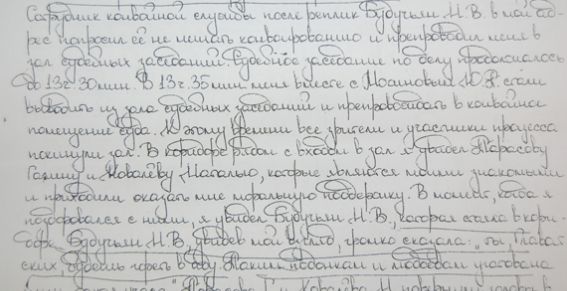 Сотрудник конвойной службы после реплик Будучьян Н.В. в мой ад-
рес попросил её не мешать конвированию и препроводил меня в
зал судебных заседаний. Судебное заседание по делу продолжалось
до 13 ч. 30 мин. В 13 ч. 35 мин. меня вместе с стали
выводить из зала судебных заседаний и препровождать в конвойное
помещение суда. К этому времени все зрители и участники процесса
покинули зал. В коридоре рядом с входом в зал я увидел Тарасову
Галину и Ковалеву Наталью, которые являются моими знакомыми
и приходили оказать мне моральную поддержку. В момент, когда я
поздоровался с ними, я увидел Будучьян Н.В., которая стояла в кори-
доре. Будучьян Н.В., увидев мой взгляд, громко сказала: "ты,
ских, Таким подонкам и уготована
Ковалева Н.